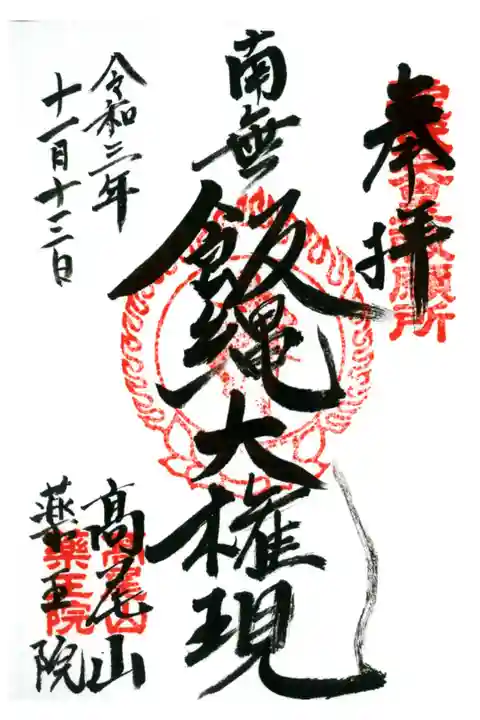 奉拝
南無飯縄大権現
令和三年
十一月十三日
高尾山
薬王院
高尾山
薬王院